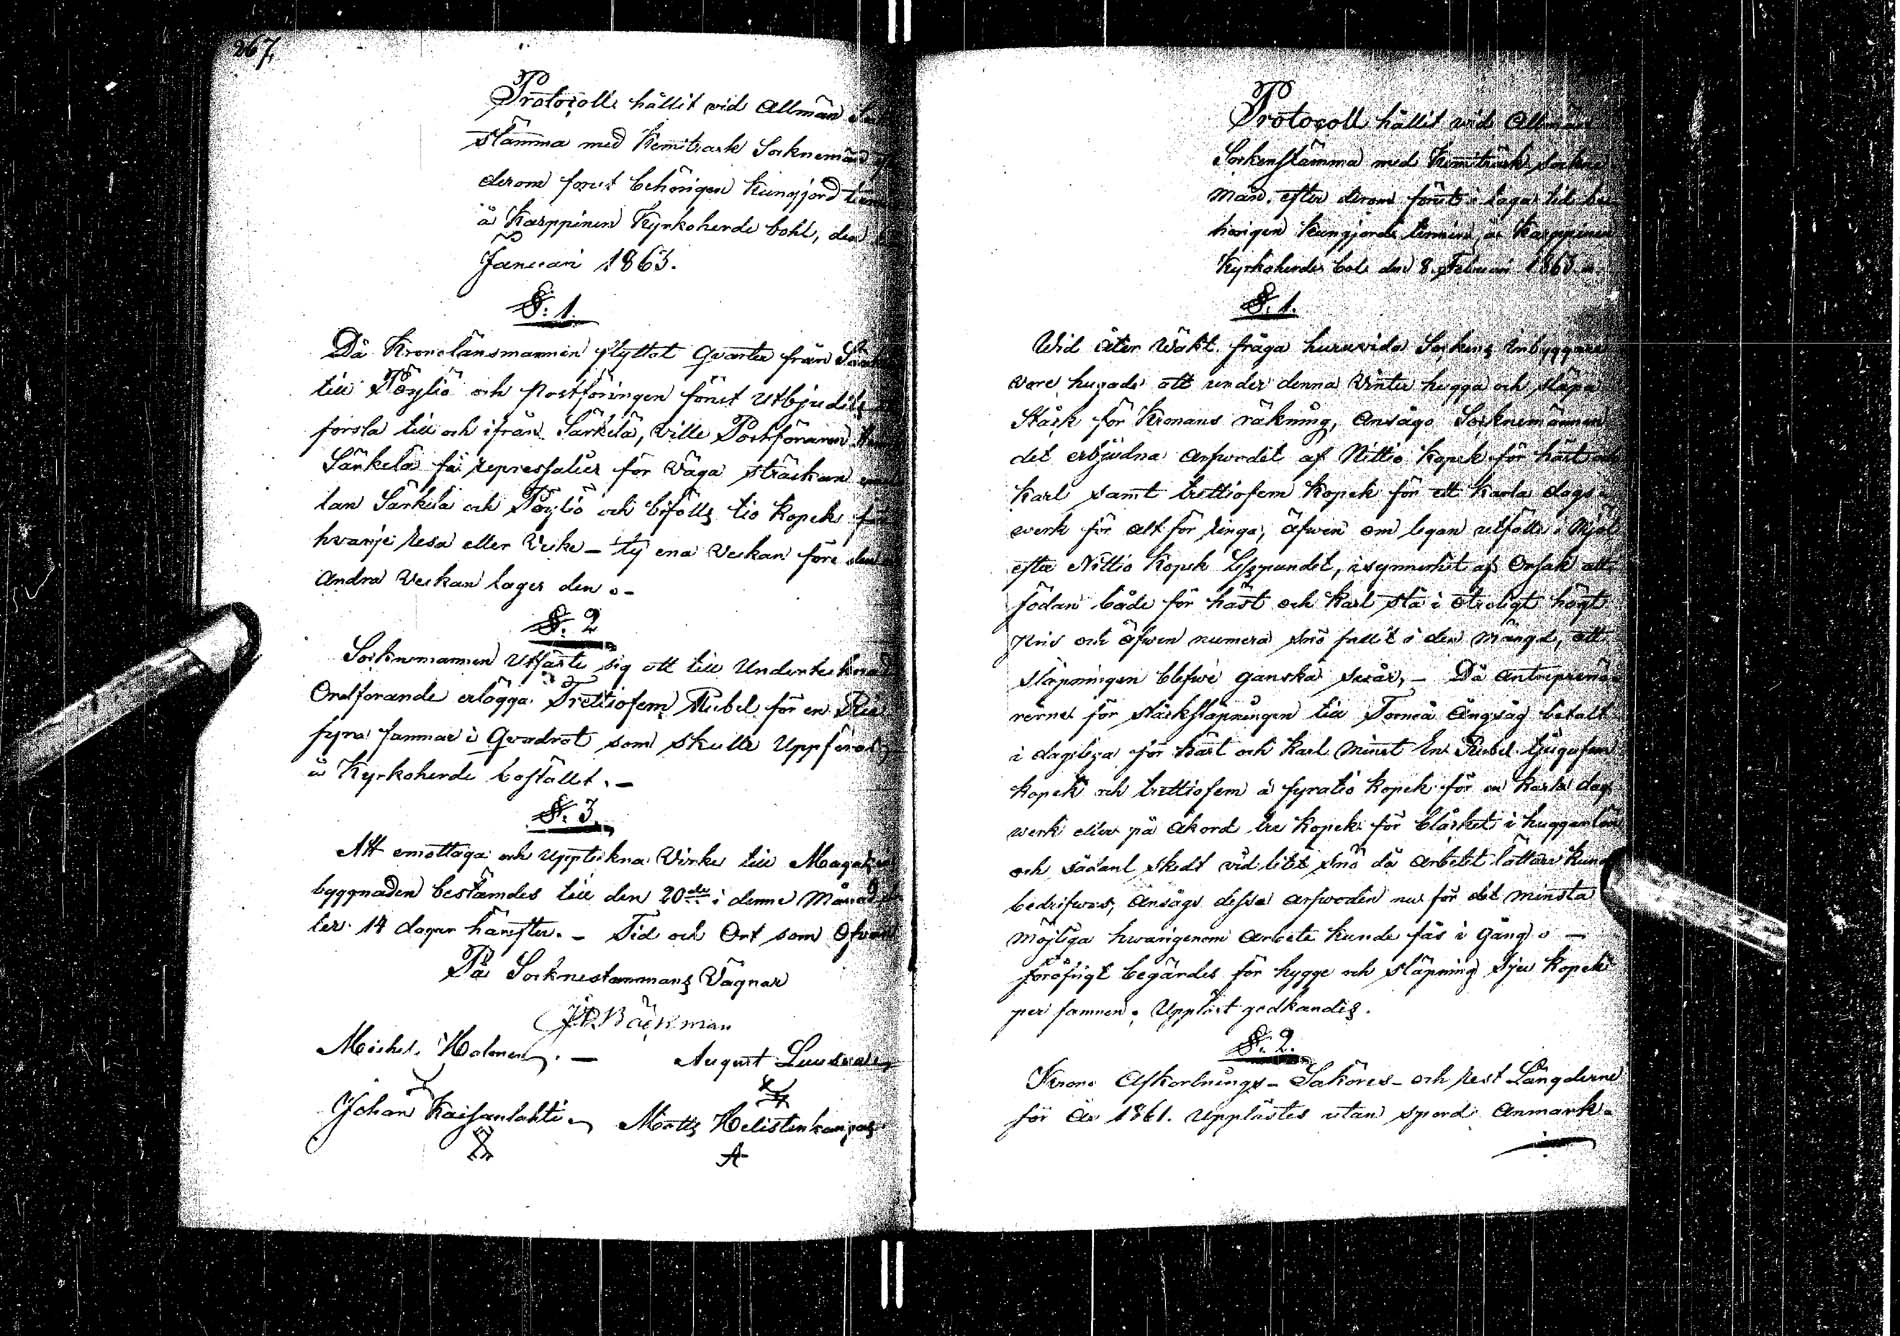 267.
Protocoll hållit vid Allmän
stämma med Kemiträsk Socknemän
derom förut behörigen kungjord
å Karppinen Kyrkoherde bohl, den
Januari 1863.
§. 1.
Då Kronolänsmannen flyttat Qvarter från
till Pöyliö och postföringen förut utbjudits
forsla till och ifrån Särkelä, ville Postföraren
Särkelä få represfalier för väga sträckan
lan Särkelä och Pöyliö och biföllz tio kopek för
hvarje resa eller Veike – ty ena Veckan före den
andra Veckan tager den. –
§. 2
Socknemännen Utfäste sig att till Undertecknad
Ordförande erlägga Trettiofem Rubel för en Ria
fyra famnar i Qvadrat som skulle Uppföras
å Kyrkoherde bostället. –
§. 3.
Att emottaga och Uppteckna Virke till
byggnaden bestämdes till den 20de i denne Månad
ler 14 dagar härefter. – Tid och Ort som Ofvan
På Socknestämmans Vägnar
Bäckman
Michel Holmen. – August
Johan Kaisanlahti Matts
A
Protocoll hållit vid Allmän
Sockenstämma med Kemiträsk Sockne
män, efter derom förut i laga tid be
hörigen kungjorde termin, å Karppinen
Kyrkoherde bol den 8. Februari 1863.
§. 1.
Wid åter Wäkt fråga huruvida Sockens inbyggare
vore hugade att under denna Vinter hugga och släpa
Stock för Kronans räkning, Ansågo Socknemännen
det erbjudna arfvodet af Nittio kopek för häst och
karl samt trettiofem kopek för ett karla dags
verk för alt för ringa, äfven om legan utfölle i Mjöl
efter Nittio kopek Lisspundet, isynnerhet af Orsak att
födan både för häst och karl stå i otroligt högt
pris och äfven numera snö fallit i den mängd, att
släpningen blefve ganska svår, – Då Antreprenö
rerne för stocksläpningen till Torneå Ångsåg betalt
i dagslega för häst och karl minst En Rubel tjugufem
kopek och trettiofem à fyratio kopek för en karls dags
werk eller på Akord tre kopek för blåcket i huggarlön
och sådant skedt vid litet snö då arbetet lättare kunde
bedrifwas, Ansågs dessa arfwoden nu för det minsta
möjliga hwarigenom Arbete kunde fås i Gång. –
föröfrigt begärdes för hygge och släpning sju kopek
per famnen. Uppläst godkändes.
§. 2.
Krono Afkortnings- Saköres- och rest Längderne
för År 1861. Upplästes utan spord Anmärk-